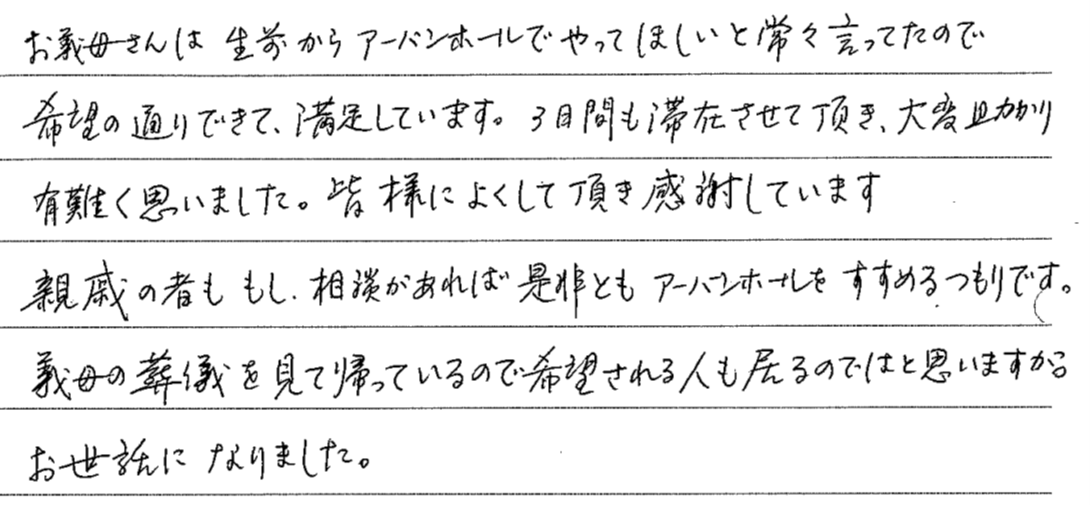 お義母さんは 生前から アーバンホールで やって ほしいと 常々 言ってたので
希望の通りできて、満足しています。3日間も滞在させて頂き、大変助かり
有難く思いました。皆様によくして頂き感謝しています
親戚の者も もし、相談があれば 是非とも アーバンホールを すすめるつもりです。
義母の葬儀を見て帰っているので希望される人も居るのではと思いますから
お世話に なりました。